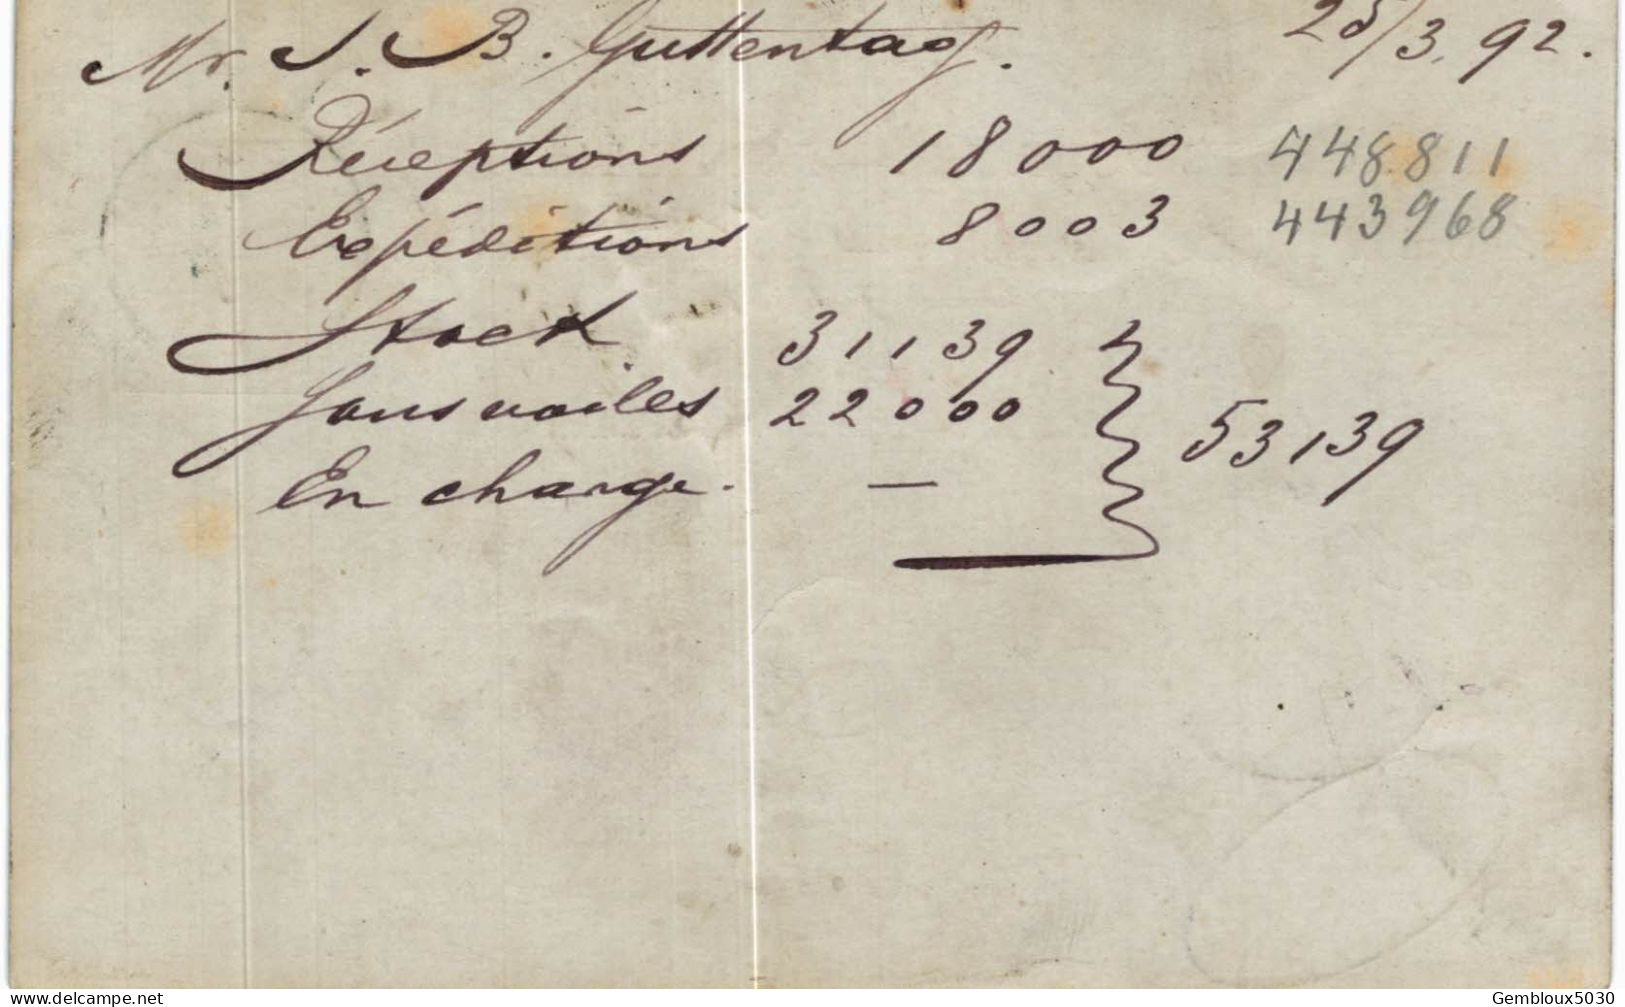 Mr. J. B. Guttentag. 25/3. 92.
Réceptions 18000 448.811
Expéditions 8003 443968
Stock 31139
Sous voiles 22000 53139
En charge. —
www.delcampe.net
Gembloux5030